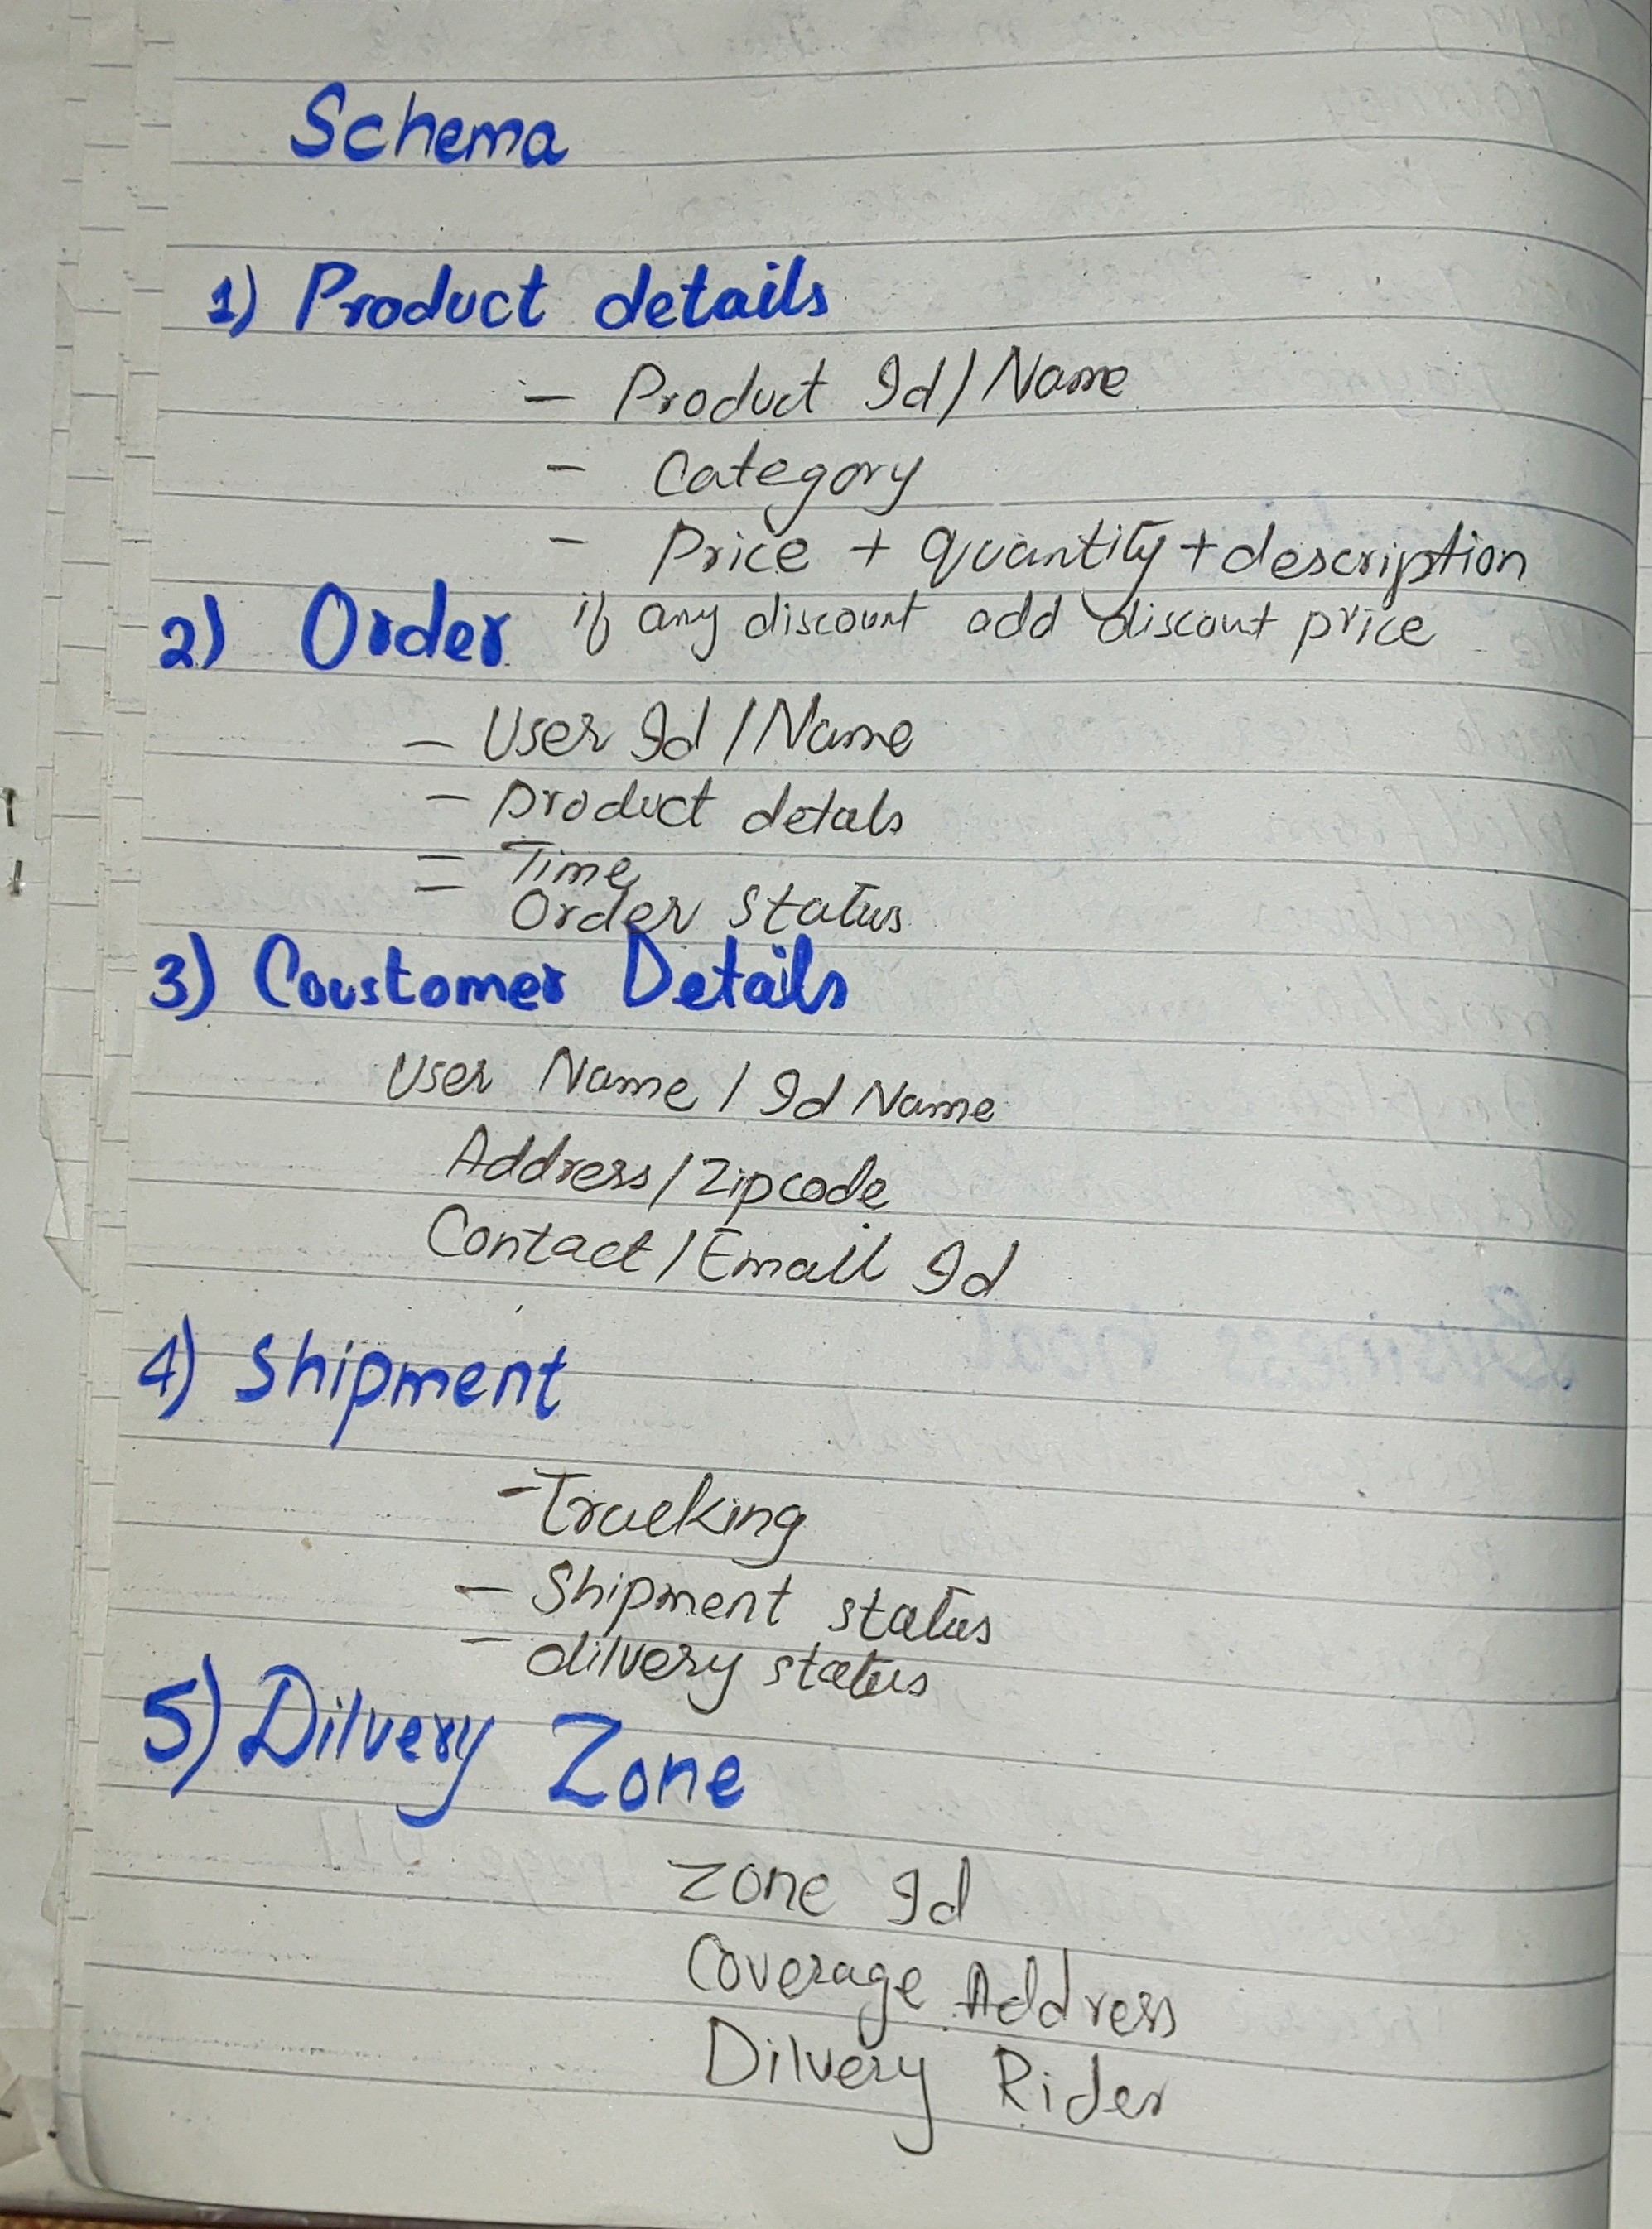 Schema
1) Product details
- Product Id / Name
- Category
- Price + quantity + description
if any discount add discount price
2) Order
- User Id / Name
- product detals
- Time
- Order status
3) Coustomer Details
User Name / Id Name
Address / Zipcode
Contact / Email Id
4) Shipment
- Tracking
- Shipment status
- dilvery status
5) Dilvery Zone
Zone Id
Coverage Address
Dilvery Rider